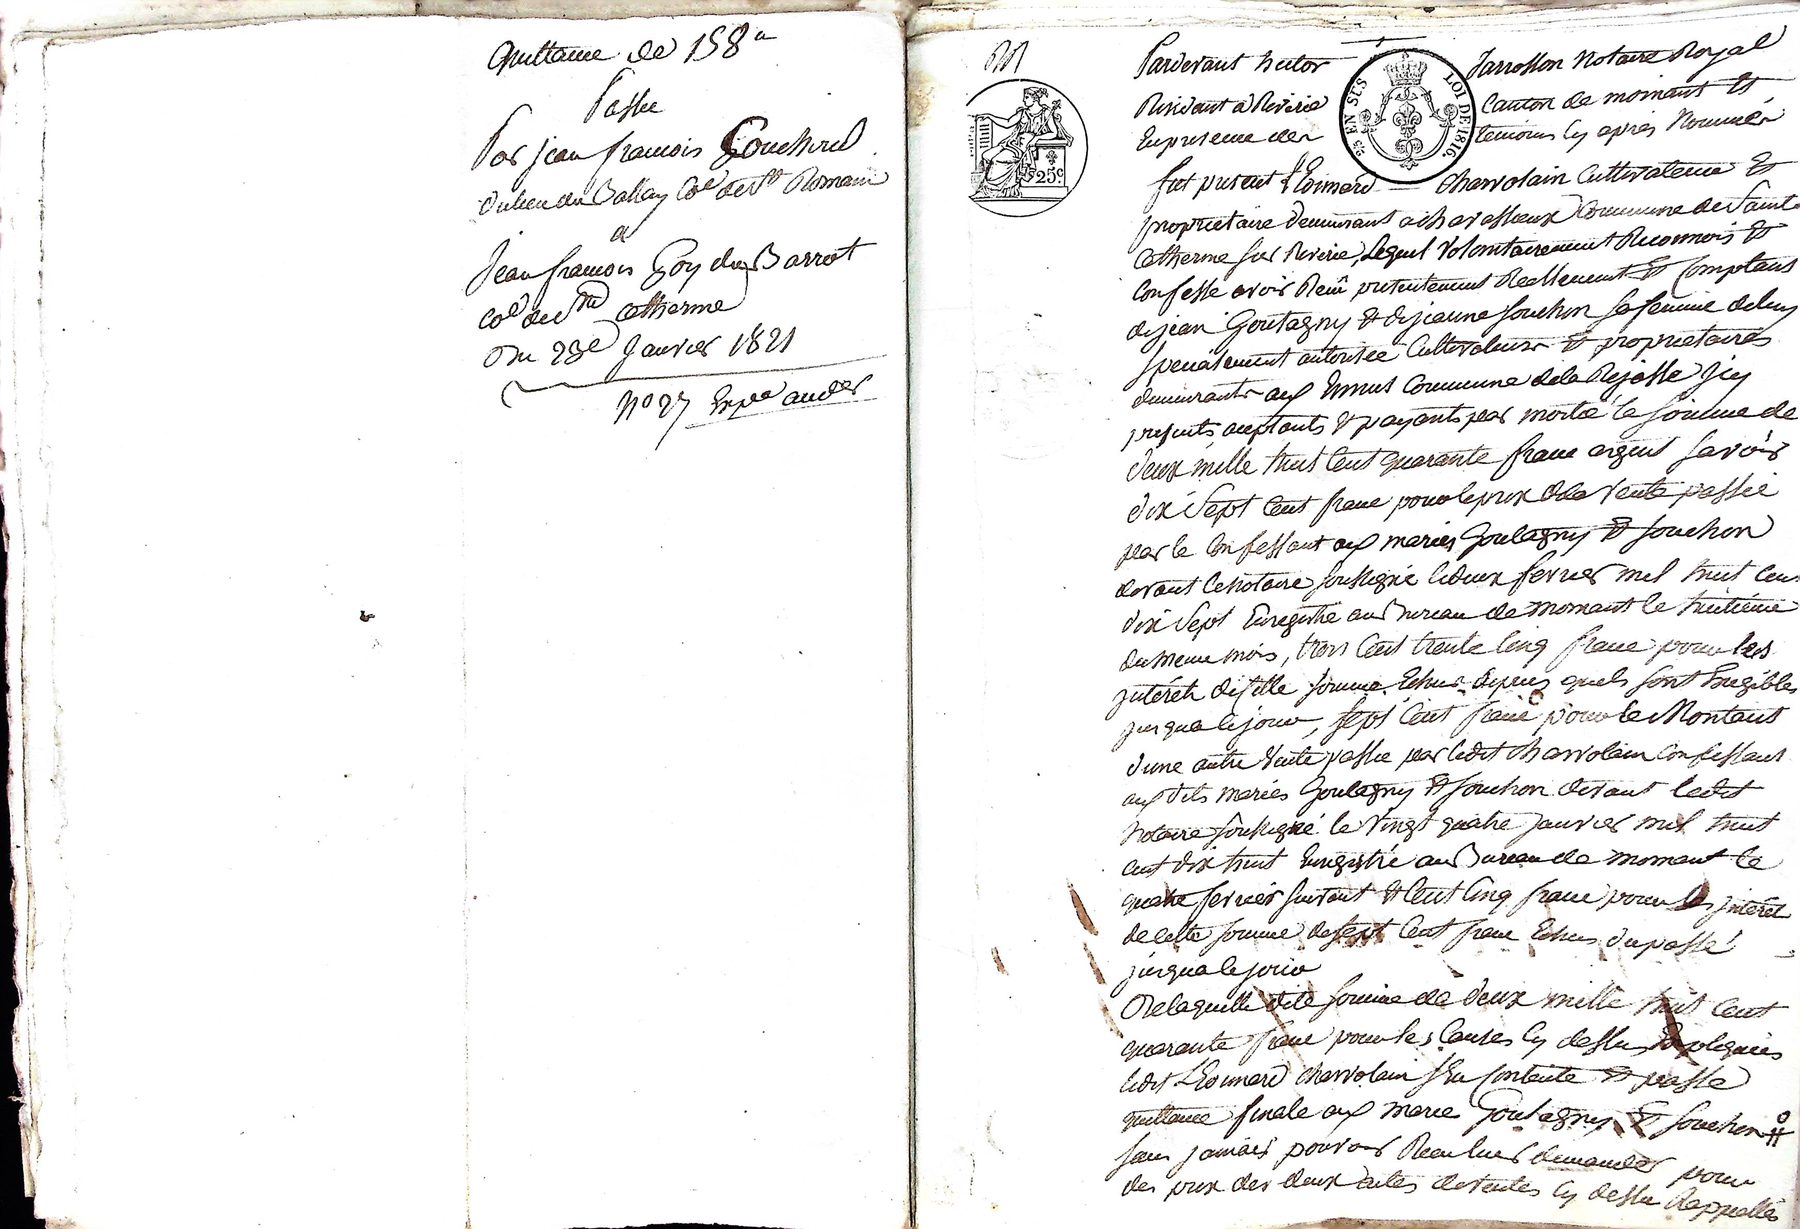 Quittance de 158 "
Passée
Par jean francois Gouchoud
du lieu du Ballay Cne de St Romain
a
Jean francois Goy du Barrot
Cne de Ste Catherine
Du 23e Janvier 1821
No 27 Expe
M
Pardevant hector Jarrosson Notaire Royal
Residant a Riverie Canton de mornant Et
En presence des temoins Cy apres Nommés
fut present Léonnard Charvolain Cultivateur Et
proprietaire demeurant a Commune de Saint
Catherine sur Riverie, Lequel Volontairement Reconnois Et
Confesse avoir Reçû presentement Reellement Et Comptant
de jean Goutagny Et de jeanne Souchon sa femme de luy
speciasement autorisée Cultivateurs Et proprietaires
demeurants aux Commune de la Rajasse Jcy
presents acceptants Et payants par moitié la somme de
deux mille huit Cent quarante franc argent Savoir
dix Sept Cent franc pour le prix de la Vente passée
par le Confessant aux mariés Goutagny Et Souchon
devant le notaire soussigné le deux fevrier mil huit Cent
dix Sept Enregistré au Bureau de Mornant le huitième
du meme mois, trois Cent trente Cinq franc pour les
jntérêts de telle somme Echus depuis quels sont Exigibles
jusqua ce jour, Sept Cent franc pour le Montant
d'une autre Vente passée par ledit Charvolain Confessant
auxdits mariés Goutagny Et Souchon devant ledit
Notaire soussigné le Vingt quatre janvier mil huit
cent dix huit Enregistré au Bureau de mornant le
quatre fevrier suivant Et Cent Cinq franc pour les jnterêt
de cette somme de sept Cent franc Echus du passé
jusqua ce jour
De laquelle dite somme de deux mille huit Cent
quarante franc pour les Causes Cy dessus Expliquées
ledit Léonnard Charvolain s'en Contente Et passe
quittance finale aux marié Goutagny Et Souchon #
sans jamais pouvoir Rien leur demander pour
des prix des deux actes de ventes Cy dessus Rappellés
25 EN SUS
LOI DE 1816.
25c